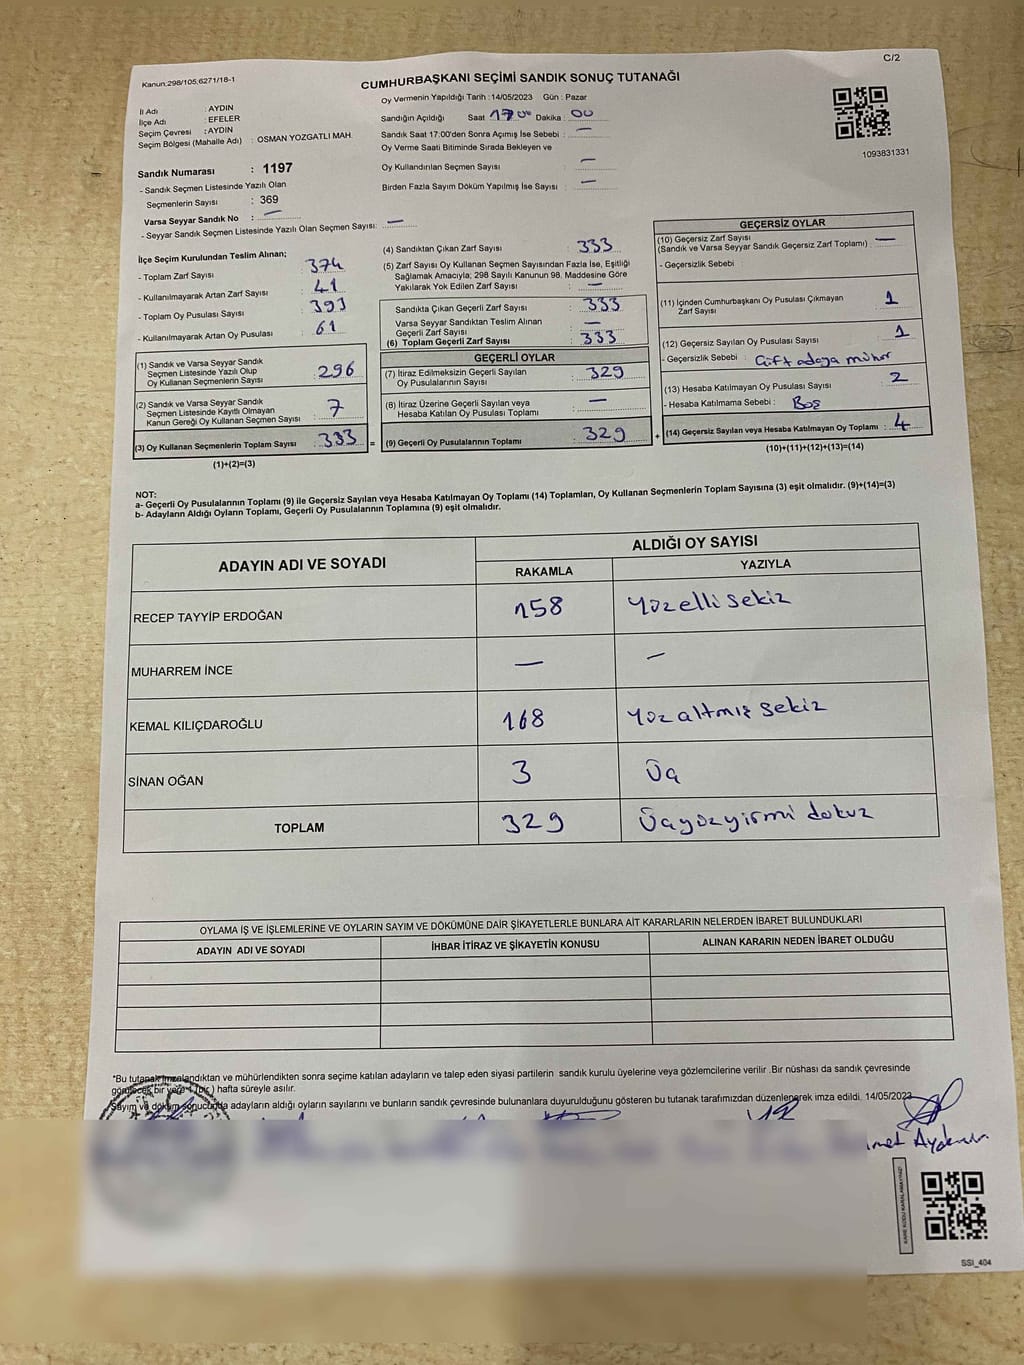 C/2
Kanun:298/105,6271/18-1
CUMHURBAŞKANI SEÇİMİ SANDIK SONUÇ TUTANAĞI
İl Adı : AYDIN
İlçe Adı : EFELER
Seçim Çevresi : AYDIN
Seçim Bölgesi (Mahalle Adı) : OSMAN YOZGATLI MAH.
Sandık Numarası : 1197
- Sandık Seçmen Listesinde Yazılı Olan
Seçmenlerin Sayısı : 369
Varsa Seyyar Sandık No : —
- Seyyar Sandık Seçmen Listesinde Yazılı Olan Seçmen Sayısı: —
Oy Vermenin Yapıldığı Tarih : 14/05/2023 Gün : Pazar
Sandığın Açıldığı Saat 17 00 Dakika : 00
Sandık Saat 17:00'den Sonra Açımış İse Sebebi : —
Oy Verme Saati Bitiminde Sırada Bekleyen ve
Oy Kullandırılan Seçmen Sayısı : —
Birden Fazla Sayım Döküm Yapılmış İse Sayısı : —
1093831331
İlçe Seçim Kurulundan Teslim Alınan;
- Toplam Zarf Sayısı : 374
- Kullanılmayarak Artan Zarf Sayısı : 41
- Toplam Oy Pusulası Sayısı : 393
- Kullanılmayarak Artan Oy Pusulası : 61
(1) Sandık ve Varsa Seyyar Sandık
Seçmen Listesinde Yazılı Olup
Oy Kullanan Seçmenlerin Sayısı : 296
(2) Sandık ve Varsa Seyyar Sandık
Seçmen Listesinde Kayıtlı Olmayan
Kanun Gereği Oy Kullanan Seçmen Sayısı : 7
(3) Oy Kullanan Seçmenlerin Toplam Sayısı : 333 =
(1)+(2)=(3)
(4) Sandıktan Çıkan Zarf Sayısı : 333
(5) Zarf Sayısı Oy Kullanan Seçmen Sayısından Fazla İse, Eşitliği
Sağlamak Amacıyla; 298 Sayılı Kanunun 98. Maddesine Göre
Yakılarak Yok Edilen Zarf Sayısı : —
Sandıkta Çıkan Geçerli Zarf Sayısı : 333
Varsa Seyyar Sandıktan Teslim Alınan
Geçerli Zarf Sayısı : —
(6) Toplam Geçerli Zarf Sayısı : 333
GEÇERLİ OYLAR
(7) İtiraz Edilmeksizin Geçerli Sayılan
Oy Pusulalarının Sayısı : 329
(8) İtiraz Üzerine Geçerli Sayılan veya
Hesaba Katılan Oy Pusulası Toplamı : —
(9) Geçerli Oy Pusulalarının Toplamı : 329 +
GEÇERSİZ OYLAR
(10) Geçersiz Zarf Sayısı
(Sandık ve Varsa Seyyar Sandık Geçersiz Zarf Toplamı) : —
- Geçersizlik Sebebi
(11) İçinden Cumhurbaşkanı Oy Pusulası Çıkmayan
Zarf Sayısı : 1
(12) Geçersiz Sayılan Oy Pusulası Sayısı : 1
- Geçersizlik Sebebi : Çift adaya mühür
(13) Hesaba Katılmayan Oy Pusulası Sayısı : 2
- Hesaba Katılmama Sebebi : Boş
(14) Geçersiz Sayılan veya Hesaba Katılmayan Oy Toplamı : 4
(10)+(11)+(12)+(13)=(14)
NOT:
a- Geçerli Oy Pusulalarının Toplamı (9) ile Geçersiz Sayılan veya Hesaba Katılmayan Oy Toplamı (14) Toplamları, Oy Kullanan Seçmenlerin Toplam Sayısına (3) eşit olmalıdır. (9)+(14)=(3)
b- Adayların Aldığı Oyların Toplamı, Geçerli Oy Pusulalarının Toplamına (9) eşit olmalıdır.
ADAYIN ADI VE SOYADI ALDIĞI OY SAYISI
RAKAMLA YAZIYLA
RECEP TAYYİP ERDOĞAN 158 Yüzellisekiz
MUHARREM İNCE — —
KEMAL KILIÇDAROĞLU 168 Yüz altmış sekiz
SİNAN OĞAN 3 Üç
TOPLAM 329 Üçyüzyirmi dokuz
OYLAMA İŞ VE İŞLEMLERİNE VE OYLARIN SAYIM VE DÖKÜMÜNE DAİR ŞİKAYETLERLE BUNLARA AİT KARARLARIN NELERDEN İBARET BULUNDUKLARI
ADAYIN ADI VE SOYADI İHBAR İTİRAZ VE ŞİKAYETİN KONUSU ALINAN KARARIN NEDEN İBARET OLDUĞU
*Bu tutanak imzalandıktan ve mühürlendikten sonra seçime katılan adayların ve talep eden siyasi partilerin sandık kurulu üyelerine veya gözlemcilerine verilir .Bir nüshası da sandık çevresinde
görülecek bir yere 1 (bir ) hafta süreyle asılır.
Sayım ve döküm sonucunda adayların aldığı oyların sayılarını ve bunların sandık çevresinde bulunanlara duyurulduğunu gösteren bu tutanak tarafımızdan düzenlenerek imza edildi. 14/05/2023
SSI_404